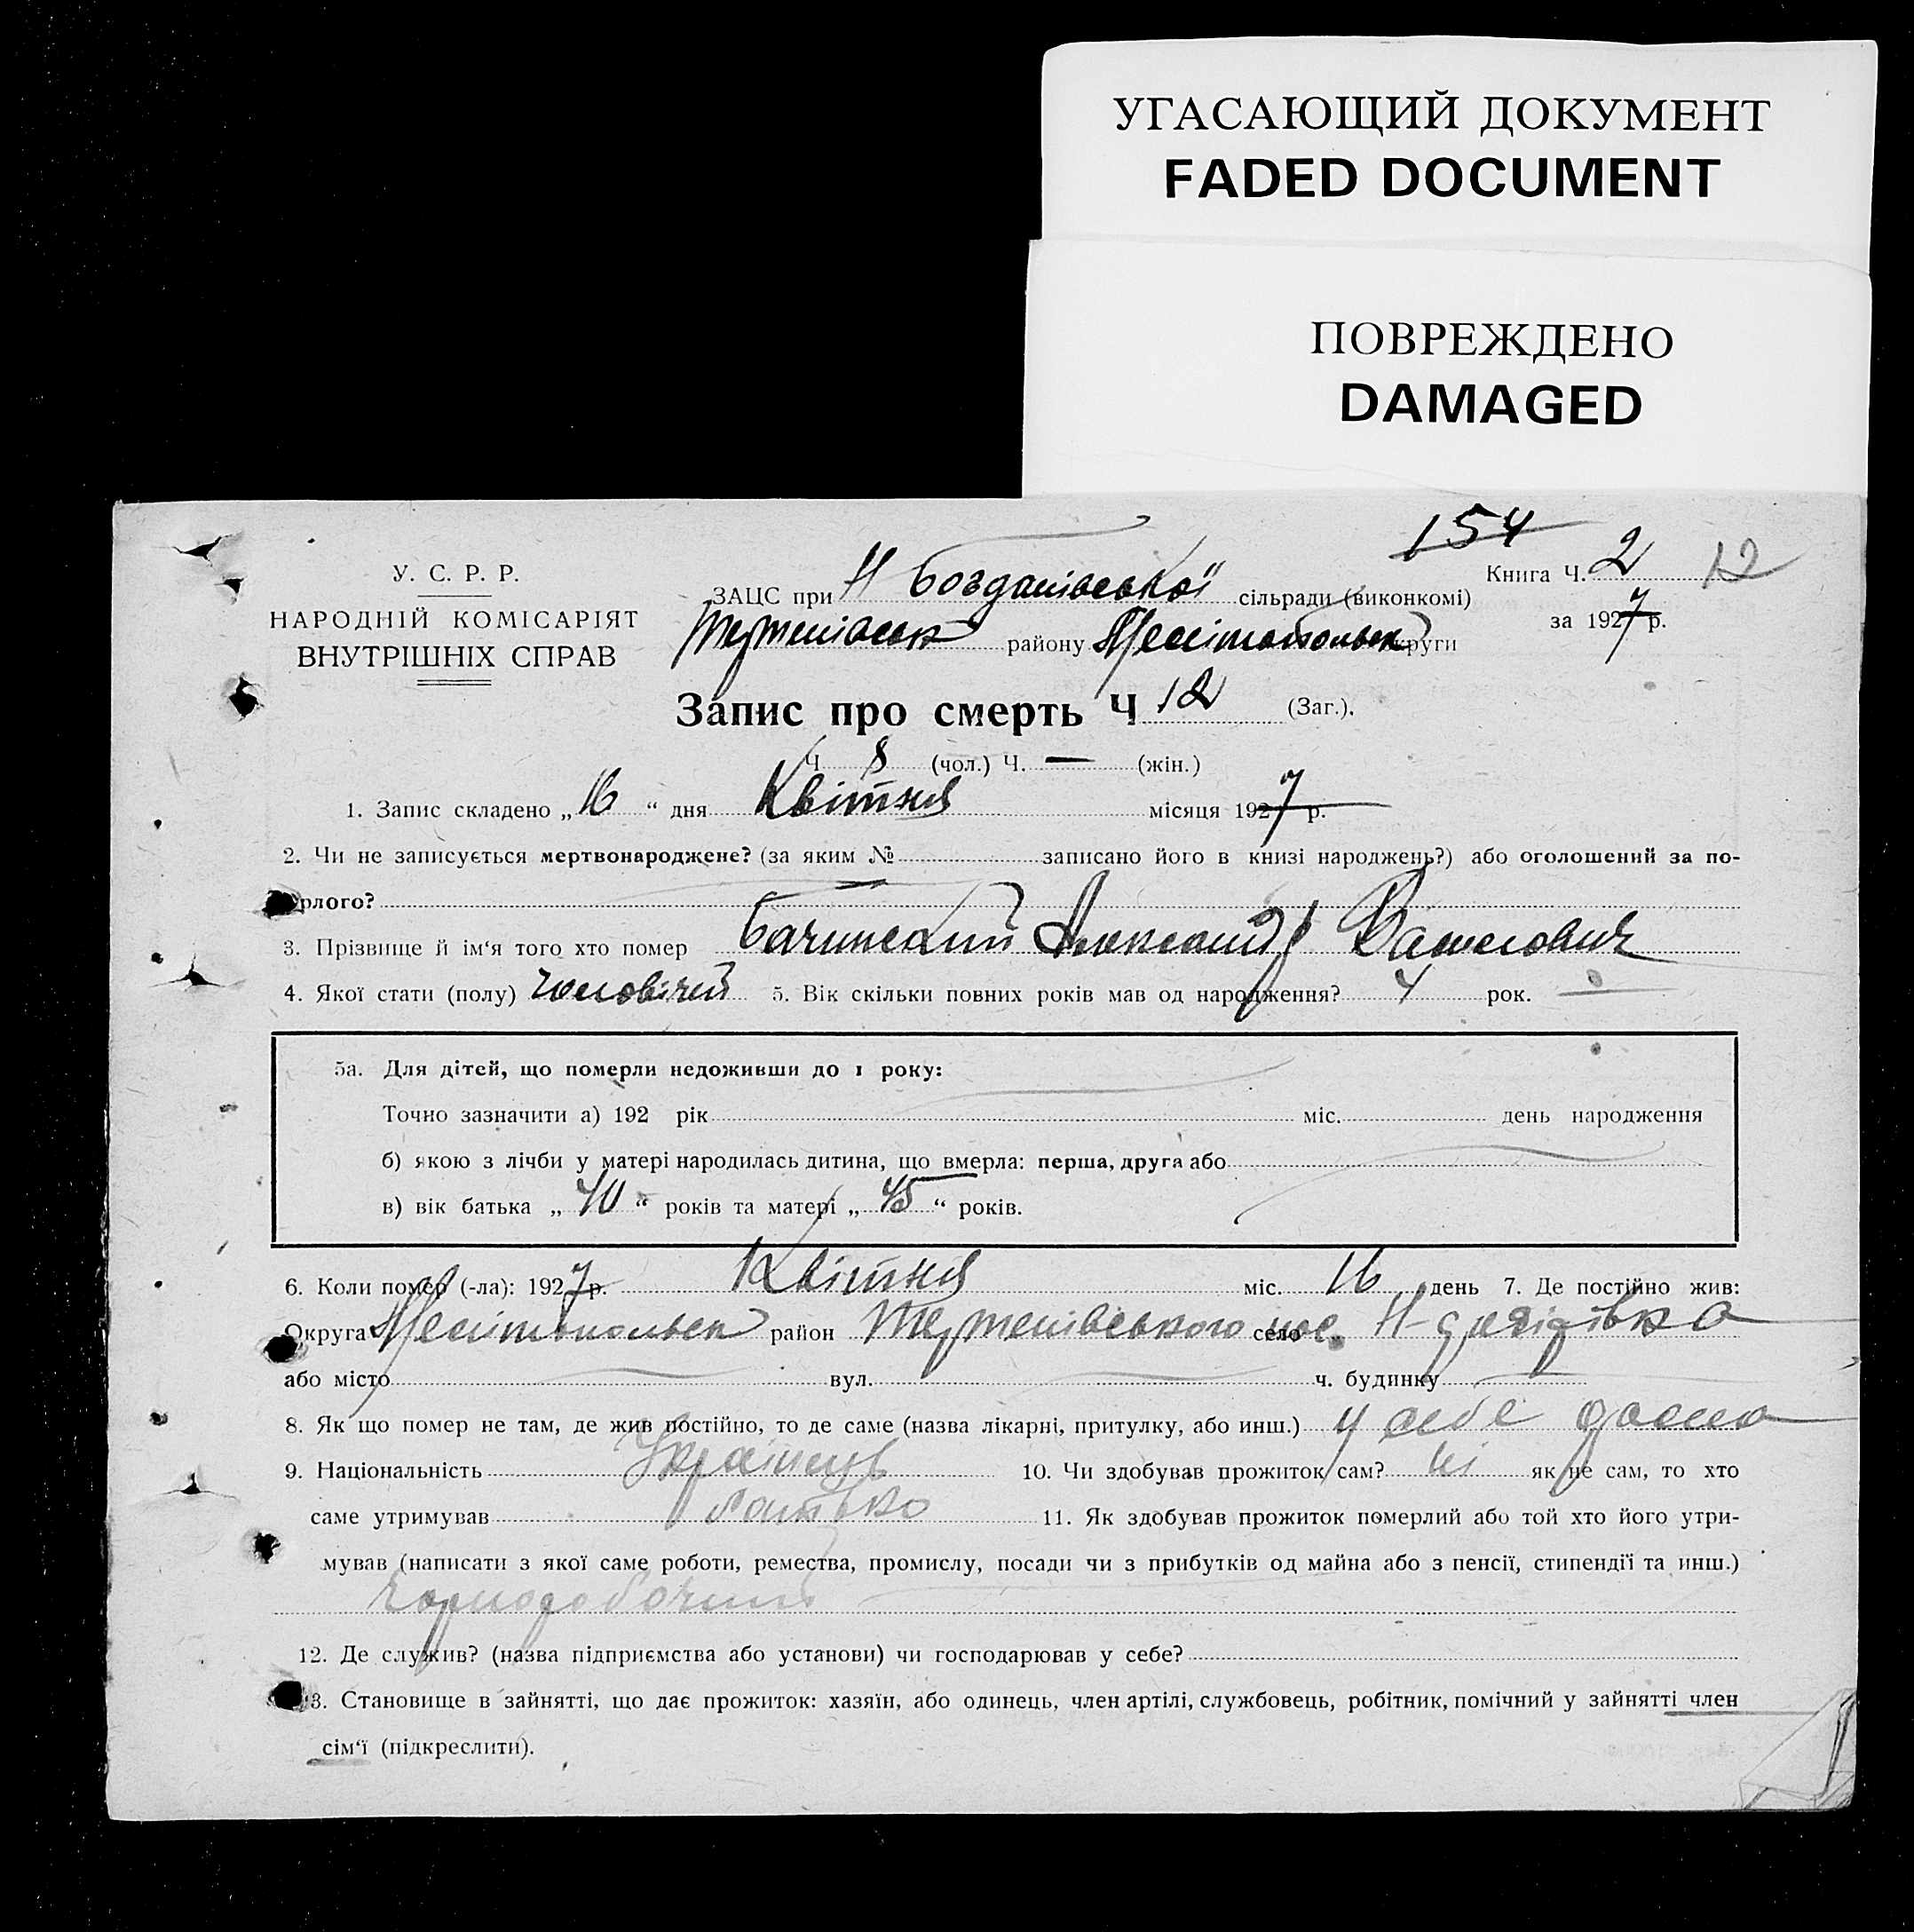 УГАСАЮЩИЙ ДОКУМЕНТ
FADED DOCUMENT
ПОВРЕЖДЕНО
DAMAGED
154
Книга Ч. 2 12
за 1927 р.
У. С. Р. Р.
НАРОДНІЙ КОМІСАРІЯТ
ВНУТРІШНІХ СПРАВ
ЗАЦС при Н Богданівської сільради (виконкомі)
району Мелітопольськ округи
Запис про смерть Ч 12 (Заг.).
Ч 8 (чол.) Ч. — (жін.)
1. Запис складено „ 16 “ дня Квітня місяця 1927 р.
2. Чи не записується мертвонароджене? (за яким № записано його в книзі народжень?) або оголошений за по-
рлого?
3. Прізвище й ім‘я того хто помер Бачинский Александр
4. Якої стати (полу) Чоловічий 5. Вік скільки повних років мав од народження? 4 рок.
5а. Для дітей, що померли недоживши до 1 року:
Точно зазначити а) 192 рік міс. день народження
б) якою з лічби у матері народилась дитина, що вмерла: перша, друга або
в) вік батька „ 40 “ років та матері „ 45 “ років.
6. Коли помер (-ла): 1927 р. Квітня міс. 16 день 7. Де постійно жив:
Округа Мелітопольськ район село
або місто вул. ч. будинку
8. Як що помер не там, де жив постійно, то де саме (назва лікарні, притулку, або инш.) у себе дома
9. Національність Українець 10. Чи здобував прожиток сам? ні як не сам, то хто
саме утримував батько 11. Як здобував прожиток померлий або той хто його утри-
мував (написати з якої саме роботи, ремества, промислу, посади чи з прибутків од майна або з пенсії, стипендії та инш.)
12. Де служив? (назва підприємства або установи) чи господарював у себе?
3. Становище в зайнятті, що дає прожиток: хазяїн, або одинець, член артілі, службовець, робітник, помічний у зайнятті член
сім‘ї (підкреслити).